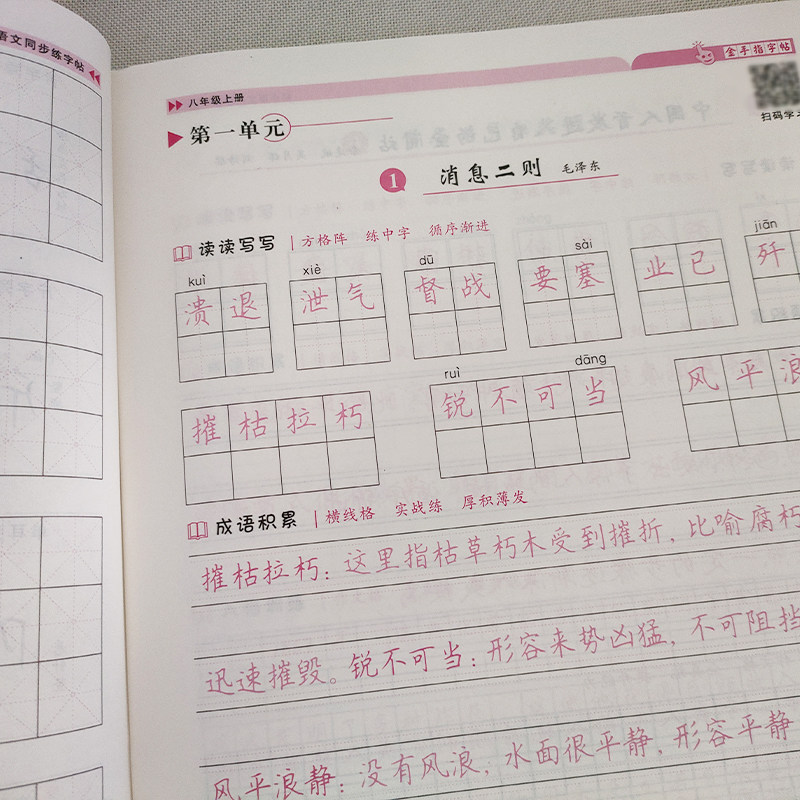 语文同步练字帖
金手指字帖
八年级上册
扫码学
第一单元
1 消息二则 毛泽东
读读写写 方格阵 练中字 循序渐进
kuì xiè dū sài jiān
溃退 泄气 督战 要塞 业已 歼
ruì dāng
摧枯拉朽 锐不可当 风平浪
成语积累 横线格 实战练 厚积薄发
摧枯拉朽：这里指枯草朽木受到摧折，比喻腐朽
迅速摧毁。锐不可当：形容来势凶猛，不可阻挡
风平浪静：没有风浪，水面很平静，形容平静